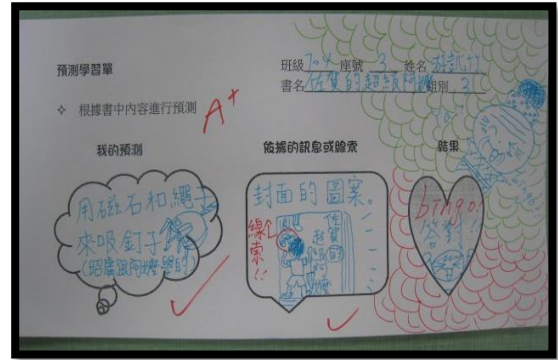 預測學習單
班級 704 座號 3 姓名
書名 佐賀的超級阿嬤 組別 3
❖ 根據書中內容進行預測
A+
我的預測
依據的訊息或線索
結果
用磁石和繩子
來吸釘子
(昭廣跟阿嬤學的)
封面的圖案。
線索!!
佐賀的
超級
阿嬤
bingo!
答對!!